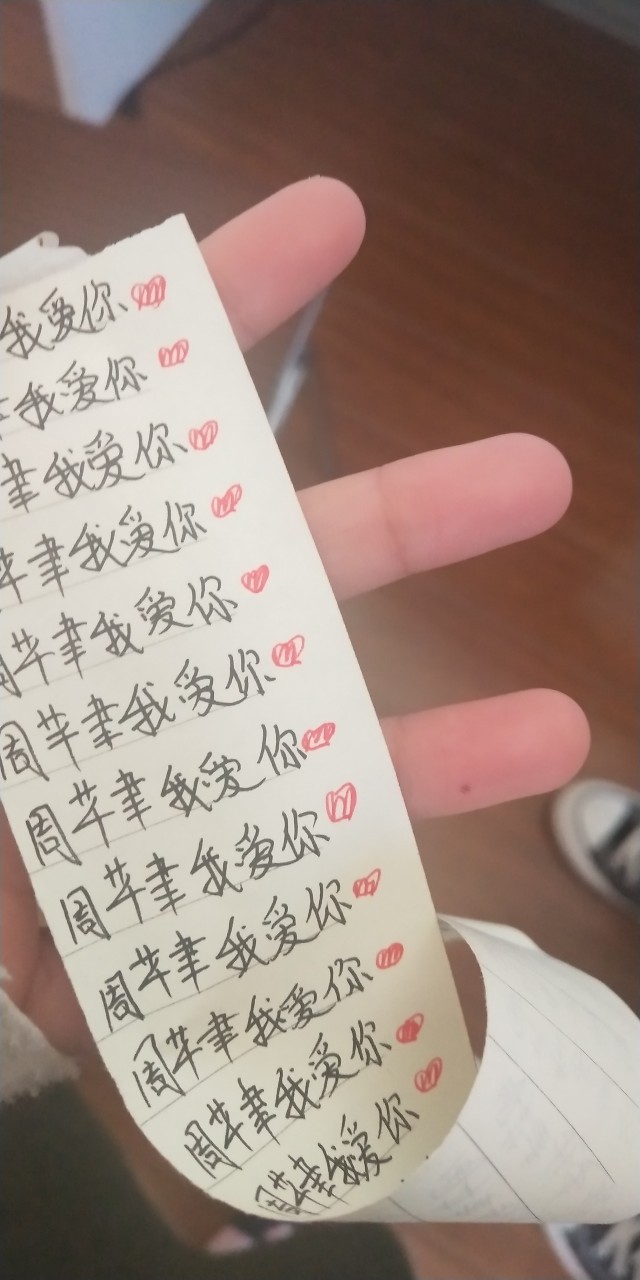 我爱你
我爱你
聿我爱你
芊聿我爱你
周芊聿我爱你
周芊聿我爱你
周芊聿我爱你
周芊聿我爱你
周芊聿我爱你
周芊聿我爱你
周芊聿我爱你
周芊聿我爱你